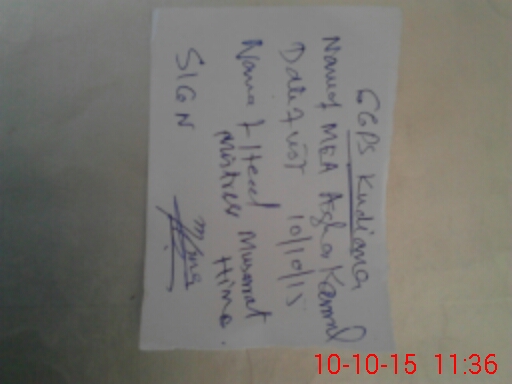 GGPS Kudiana
Name of MEA Asghar Kamal
Date of visit 10/10/15
Name of Head
Mistress Musarrat
Hima.
SIGN
10-10-15 11:36